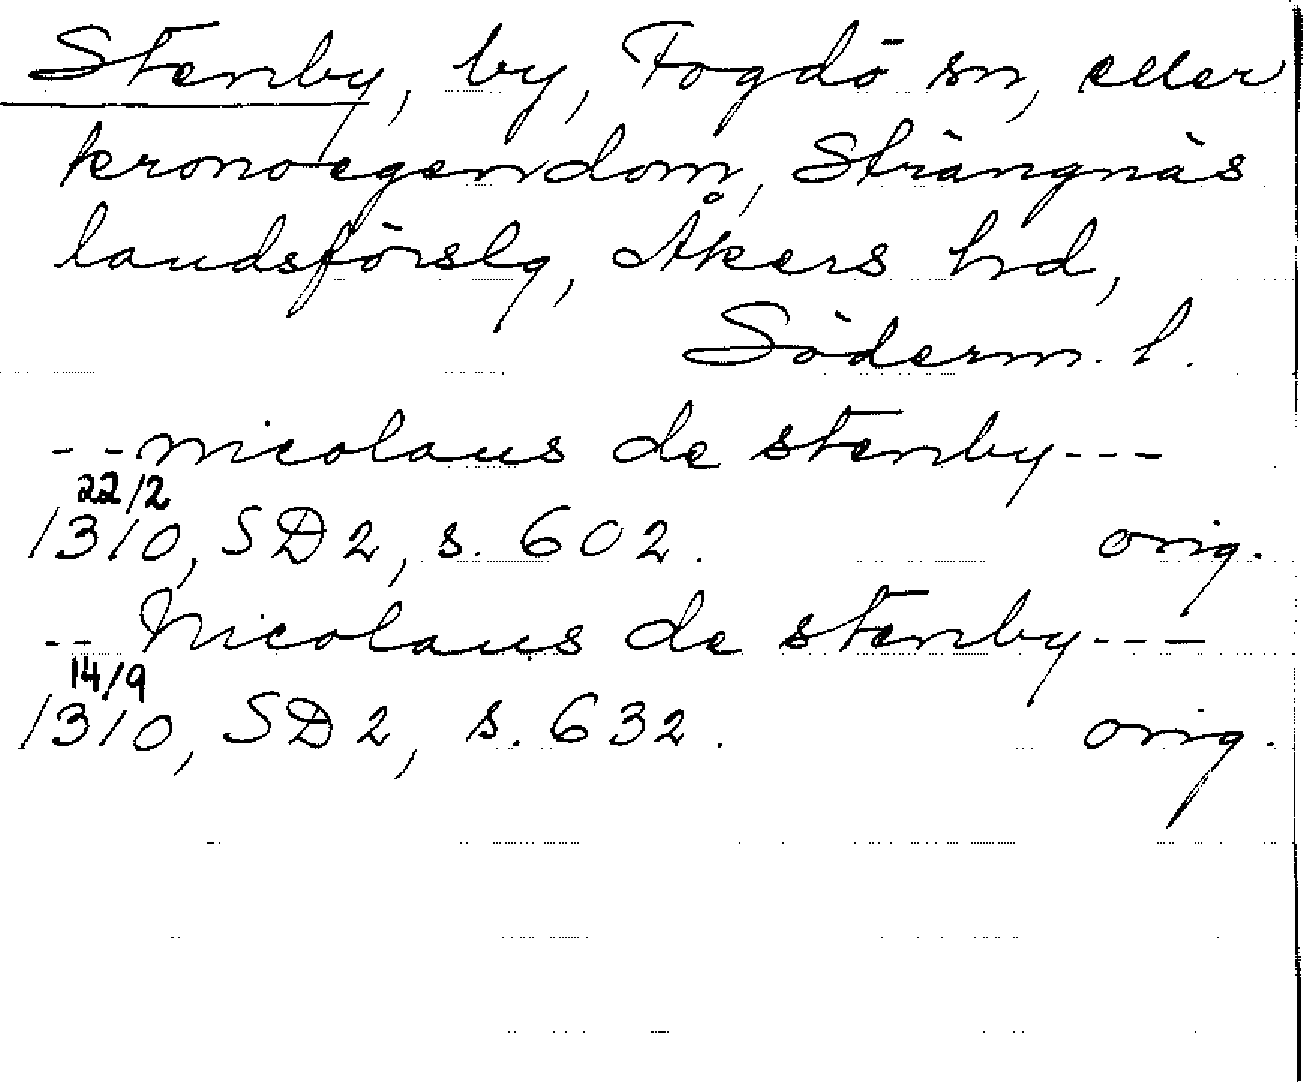 Stenby, by, Fogdö sn, eller
kronoegendom, Strängnäs
landsförslg, Åkers hd,
Söderm. l.
-- nicolaus de stenby ---
22/2
1310, SD 2, s. 602. orig.
-- Nicolaus de stenby ---
14/9
1310, SD 2, s. 632. orig.